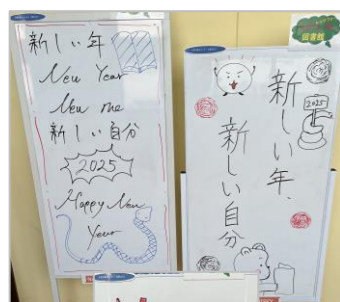 新しい年
New Year
New me
新しい自分
2025
Happy New
Year
図書館
2025
新しい年、
新しい自分